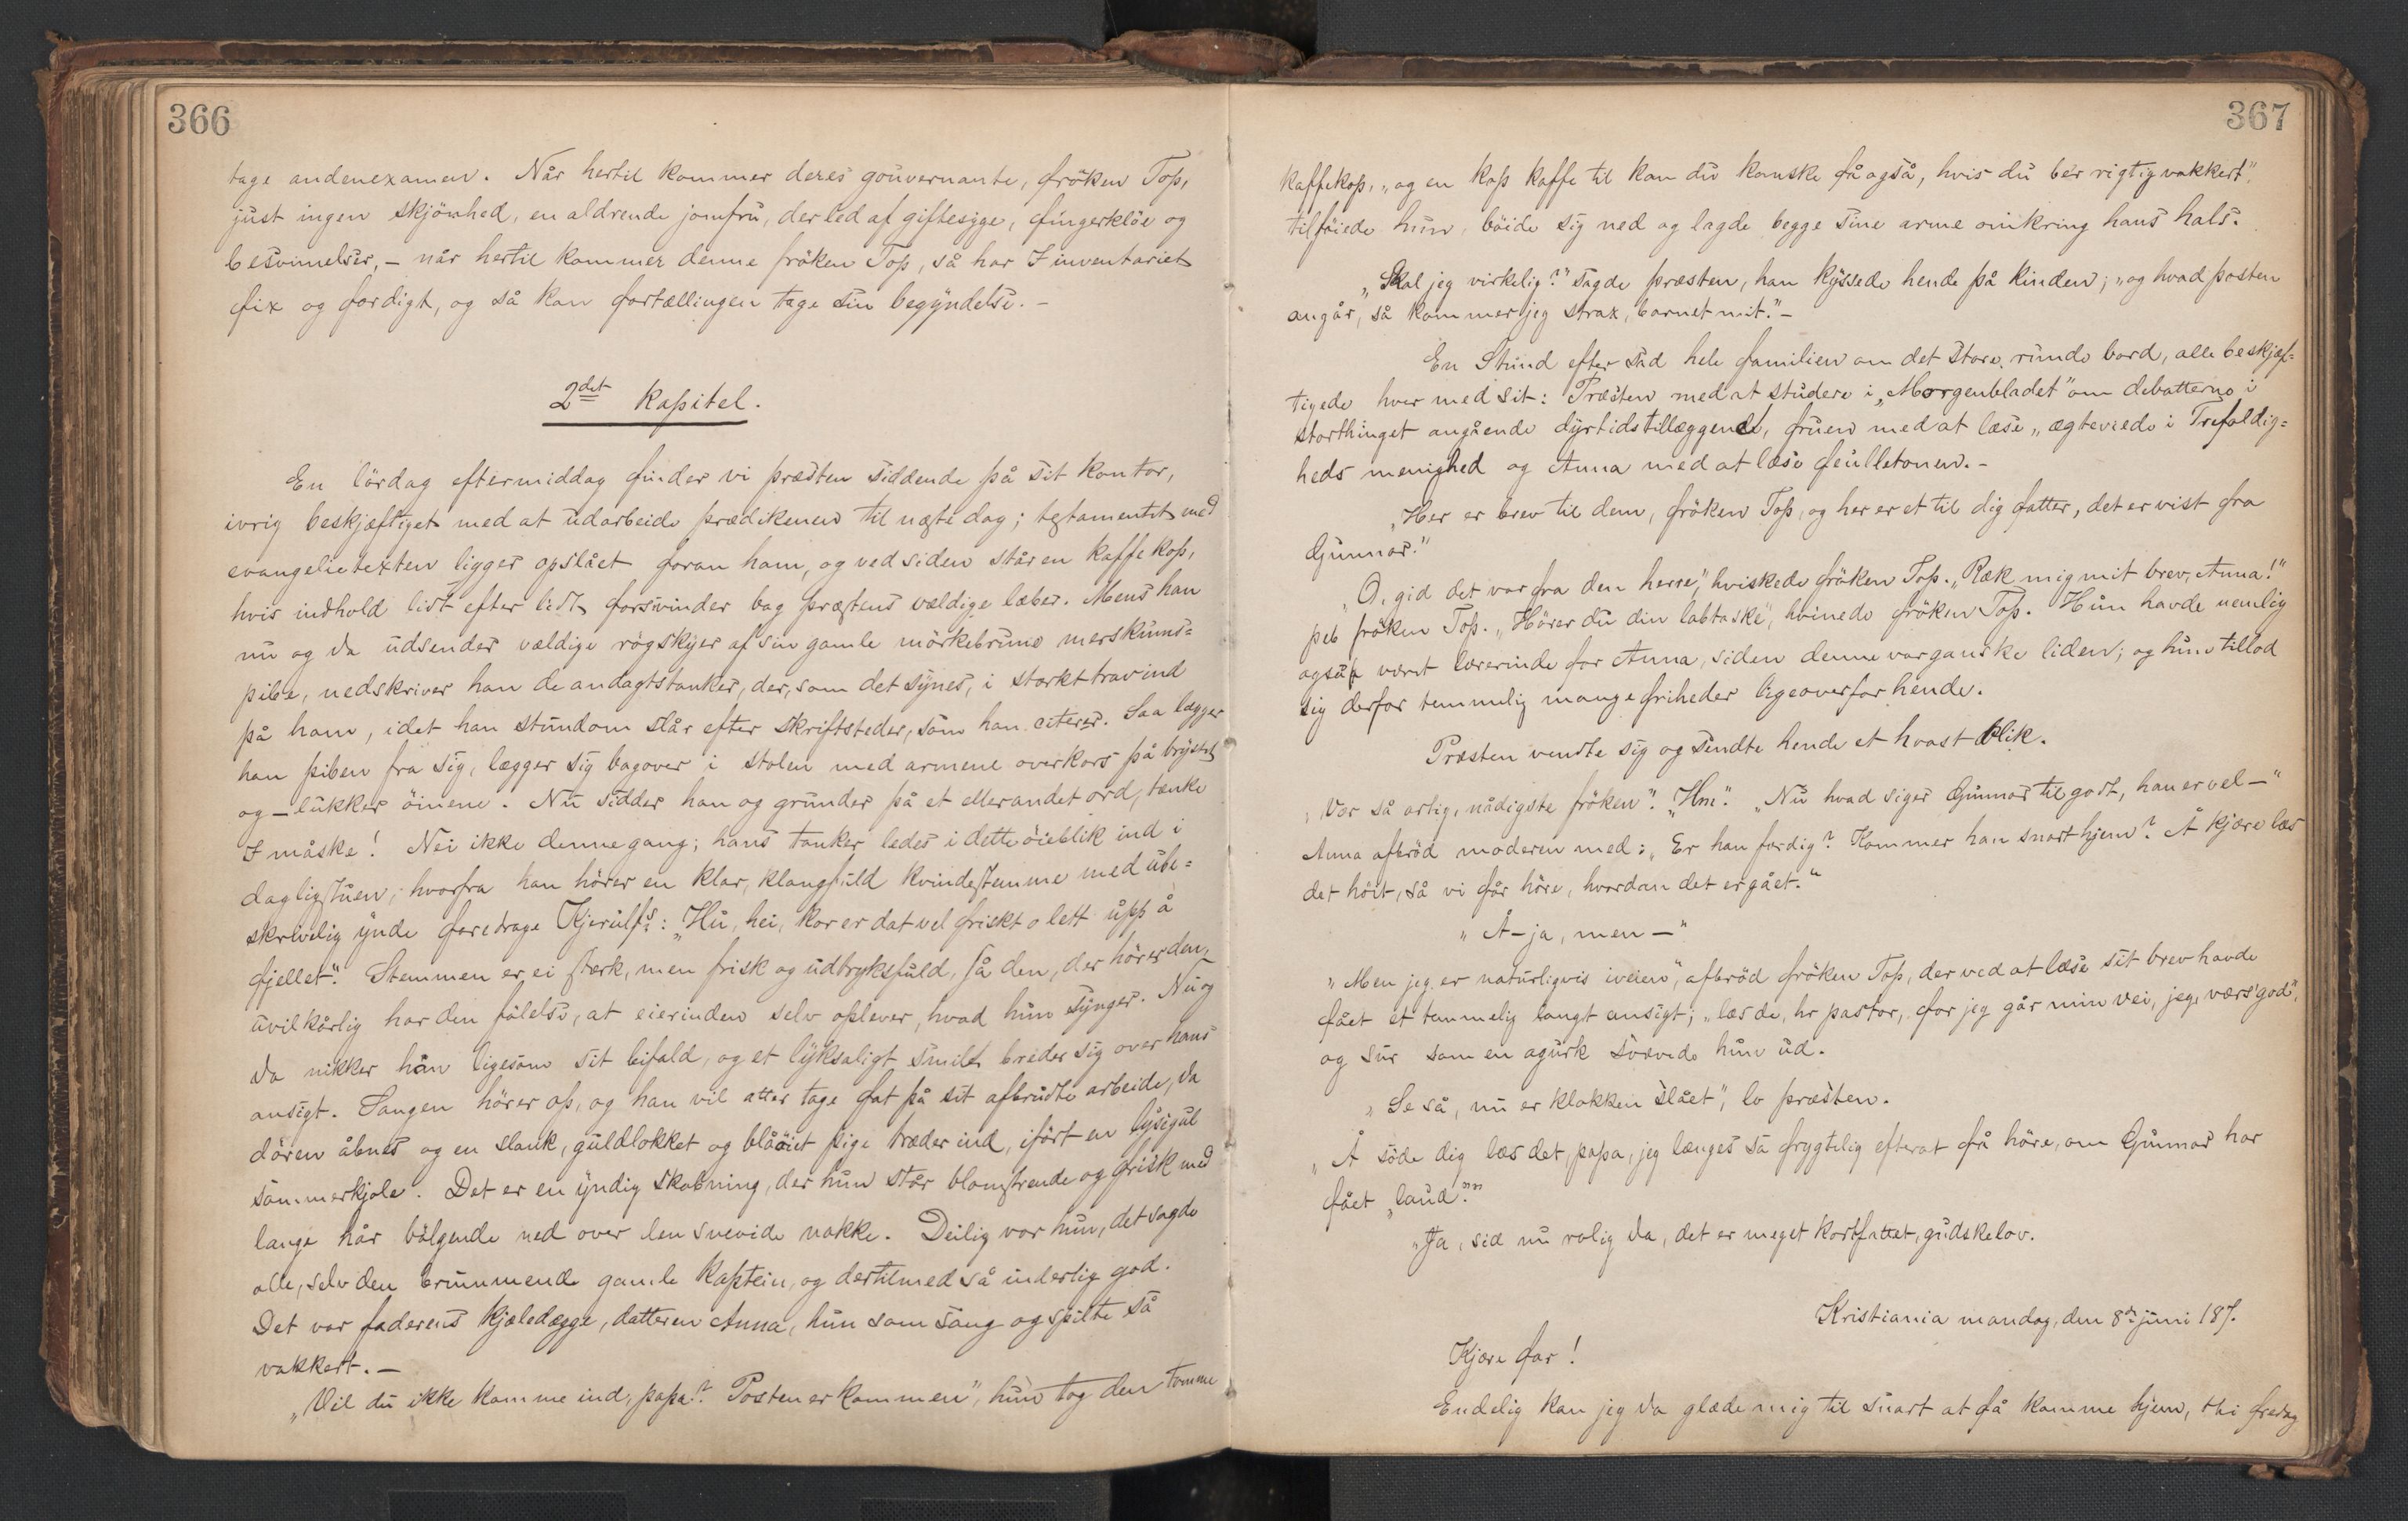 366
tage andenexamen. Når hertil kommer deres gouvernante, fröken Top,
just ingen skjönhed, en aldrende jomfru, der led af giftesyge, fingerklöe og
besvimelser, – når hertil kommer denne fröken Top, så har I inventariet
fix og færdigt, og så kan fortællingen tage sin begyndelse. –
2det kapitel.
En lördag eftermiddag finder vi præsten siddende på sit kontor,
ivrig beskjæftiget med at udarbeide prædikenen til næste dag; testamentet med
evangelietexten ligger opslået foran ham, og ved siden står en kaffekop,
hvis indhold lidt efter lidt forsvinder bag præstens vældige læber. Mens han
nu og da udsender vældige rögskyer af sin gamle mörkebrune merskums=
pibe, nedskriver han de andagtstanker, der, som det synes, i stærkt trav ind
på ham, idet han stundom slår efter skriftsteder, som han citerer. Saa lægger
han piben fra sig, lægger sig bagover i stolen med armene overkors på brystet
og – lukker öinene. Nu sidder han og grunder på et eller andet ord, tænke
I måske! Nei ikke denne gang; hans tanker ledes i dette öieblik ind i
dagligstuen, hvorfra han hörer en klar, klangfuld kvindestemme med ube=
skrivelig ynde foredrage Kjerulfs: „Hu, hei, kor er dat vel friskt o lett upp å
fjellet." Stemmen er ei stærk, men frisk og udtryksfuld, så den, der hörer den,
uvilkårlig har den fölelse, at eierinden selv oplever, hvad hun synger. Nu og
da nikker han ligesom sit bifald, og et lyksaligt smil breder sig over hans
ansigt. Sangen hörer op, og han vil atter tage fat på sit afbrudte arbeide, da
dören åbnes og en slank, guldlokket og blåöiet pige træder ind, ifört en lysegul
sommerkjole. Det er en yndig skabning, der hun står blomstrende og frisk med
lange hår bölgende ned over den snevide nakke. Deilig var hun, det sagde
alle, selv den brummende gamle kaptein, og dertilmed så inderlig god.
Det var faderens kjæledægge, datteren Anna, hun som sang og spilte så
vakkert. –
„Vil du ikke komme ind, papa? Posten er kommen", hun tog den tomme
367
kaffekop, „og en kop kaffe til kan du kanske få også, hvis du ber rigtig vakkert".
tilföiede hun, böide sig ned og lagde begge sine arme omkring hans hals.
„Skal jeg virkelig?" sagde præsten, han kyssede hende på kinden; „og hvad posten
angår, så kommer jeg strax, barnet mit." –
En Stund efter sad hele familien om det store runde bord, alle beskjæf=
tigede hver med sit: Præsten med at studere i „Morgenbladet" om debatterne i
storthinget angående dyrtidstillæggene, fruen med at læse „ægteviede i Trefoldig=
heds menighed og Anna med at læse feuilletonen. –
„Her er brev til dem, fröken Top, og her er et til dig fatter, det er vist fra
Gunnar."
„O, gid det var fra den herre," hviskede fröken Top. „Ræk mig mit brev, Anna!"
peb fröken Top. „Hörer du din labtaske", hvinede fröken Top. Hun havde nemlig
også været lærerinde for Anna, siden denne var ganske liden; og hun tillod
sig derfor temmelig mange friheder ligeoverfor hende.
Præsten vendte sig og sendte hende et hvast blik.
„Vær så artig, nådigste fröken". "Hm". „Nu hvad siger Gunnar til godt, han er vel –"
Anna afbröd moderen med: „Er han færdig? Kommer han snart hjem? Å kjære læs
det höit, så vi får höre, hvordan det er gået."
„Å – ja, men –"
„Men jeg er naturligvis iveien", afbröd fröken Top, der ved at læse sit brev havde
fået et temmelig langt ansigt; „læs de, hr pastor, for jeg går min vei, jeg, værs'god",
og sur som en agurk svævede hun ud.
„Se så, nu er klokken slået", lo præsten.
„Å söde dig læs det, papa, jeg længes så frygtelig efter at få höre, om Gunnar har
fået „laud"."
„Ja, sid nu rolig da, det er meget kortfattet, gudskelov.
Kristiania mandag, den 8de juni 187.
Kjære far!
Endelig kan jeg da glæde mig til snart at få komme hjem, thi fredag